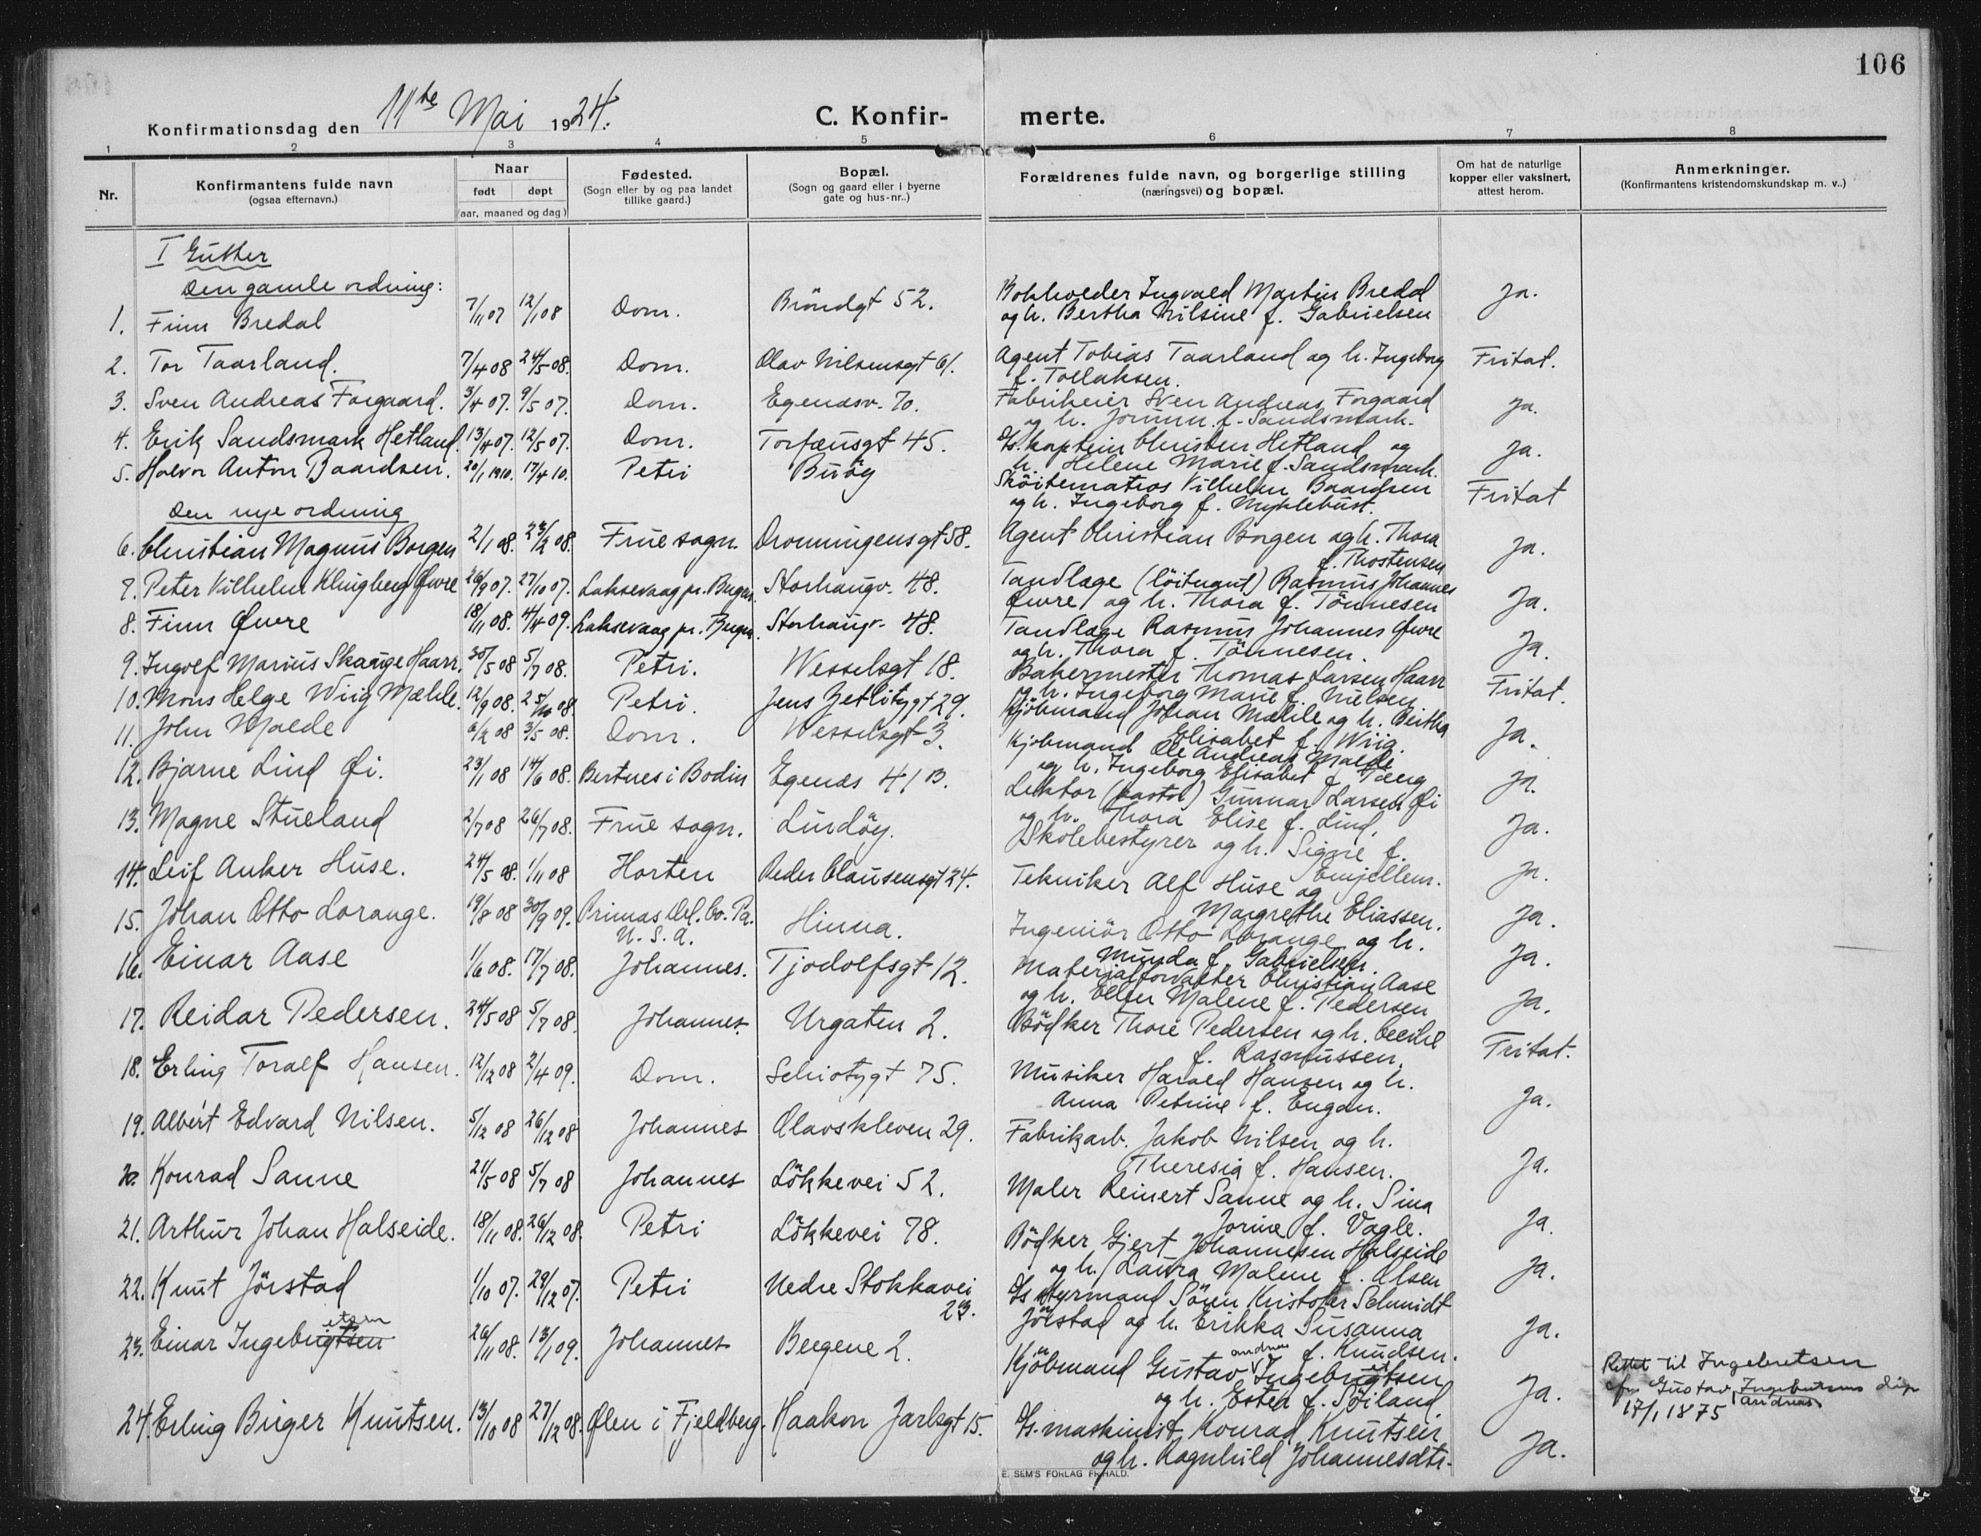 106
Konfirmationsdag den 11te Mai 1924.
C. Konfir- merte.
1 2 3 4 5 6 7 8
Nr.
Konfirmantens fulde navn
(ogsaa efternavn.)
Naar
født døpt
(aar, maaned og dag)
Fødested.
(Sogn eller by og paa landet
tillike gaard.)
Bopæl.
(Sogn og gaard eller i byerne
gate og hus-nr..)
Forældrenes fulde navn, og borgerlige stilling
(næringsvei) og bopæl.
Om hat de naturlige
kopper eller vaksinert,
attest herom.
Anmerkninger.
(Konfirmantens kristendomskundskap m. v..)
I Gutter
Den gamle ordning:
1. Finn Bredal 7/11 07 12/1 08 Dom. Bröndgt 52. Bokholder Ingvald Martin Bredal ja.
og h. Bertha Nilsine f. Gabrielsen
2. Tor Taarland. 7/4 08 24/5 08. Dom. Olav Nilsensgt 61. Agent Tobias Taarland og h. Ingeborg Fritat.
f. Tollaksen.
3. Sven Andreas Forgaard. 3/4 07. 9/5 07. Dom. Egenæsv. 70. Fabrikeier Sven Andreas Forgaard ja.
og h. Jorunn f. Sandsmark.
4. Erik Sandsmark Hetland. 13/4 07. 12/5 07. Dom. Torfæusgt 45. Ds. kaptein Christen Hetland og ja.
h. Helene Marie f. Sandsmark.
5. Halvor Anton Baardsen. 20/1 1910. 17/4 10. Petri Buöy Sköitematros Vilhelm Baardsen Fritat
og h. Ingeborg f. Myklebust.
Den nye ordning
6. Christian Magnus Borgen 2/1 08. 23/2 08. Frue sogn. Dronningensgt 58. Agent Christian Borgen og h. Thora ja.
f. Thostensen
7. Peter Vilhelm Klingberg Øvre 26/9 07. 27/10 07. Laksevaag pr. Bergen. Storhaugv. 48. Tandlæge (löitnant) Rasmus Johannes Ja.
Øvre og h. Thora f. Tönnesen
8. Finn Øvre 18/11 08. 4/4 09. Laksevaag pr. Bergen. Storhaugv. 48. Tandlæge Rasmus Johannes Øvre Ja.
og h. Thora f. Tönnesen.
9. Ingolf Marius Skauge Haarr. 30/5 08 5/7 08. Petri. Wesselsgt 18. Bakermester Thomas Larsen Haarr Fritat.
og h. Ingeborg Marie f. Nielsen
10. Mons Helge Wiig Mæhle. 12/9 08. 25/10 08. Petri. Jens Zetlitzgt 29. Kjöbmand Johan Mæhle og h. Bertha Ja.
Elisabet f. Wiig.
11. John Molde 6/2 08 3/5 08. Dom. Wesselsgt 3. Kjöbmand Ole Andreas Molde ja.
og h. Ingeborg Elisabet f.
12. Bjarne Lind Øi. 23/1 08 14/6 08. Bertnes i Bodin Egenæs 41 B. Lektor Gunnar Larsen Øi Ja.
og h. Thora Elise f. Lind.
13. Magne Stueland 2/7 08 26/7 08. Frue sogn. Lindöy. Skolebestyrer og h. Signe f. ja.
14. Leif Anker Huse. 24/5 08. 1/11 08 Horten Peder Clausensgt 24. Tekniker Alf Huse og Ja.
Margrethe Eliassen.
15. Johan Otto Lorange. 19/8 08 30/9 09. Primas Del. Co. Pa. Hinna. Ingeniör Otto Lorange og h. Ja.
U. S. A. Munda f. Gabrielsen.
16. Einar Aase 1/6 08. 17/7 08. Johannes. Tjodolfsgt 12. Materialforvalter Christian Aase Ja.
og h. Ellen Malene f. Pedersen
17. Reidar Pedersen. 24/5 08 5/7 08. Johannes Urgaten 2. Bödker Thore Pedersen og h. Cecilie Fritat.
f. Rasmussen.
18. Erling Toralf Hansen. 12/12 08 2/4 09. Dom. Schiötzgt 75. Musiker Harald Hansen og h. Ja.
Anna Petrine f. Engan.
19. Albert Edvard Nilsen. 5/12 08 26/12 08 Johannes Olavskleven 29. Fabrikarb. Jakob Nilsen og h. Ja.
Theresia f. Hansen.
20. Konrad Sanne 21/5 08 5/7 08 Johannes Lökkevei 52. Maler Reinert Sanne og h. Sina Ja.
Jorine f. Vagle.
21. Arthur Johan Halseide. 18/11 08. 26/12 08. Petri Lökkevei 78. Bödker Gjert Johannesen Halseide Ja.
og h. Laura Malene f. Olsen
22. Knut Jörstad 1/10 07. 29/12 07. Petri Nedre Stokkavei Ds styrmand Sören Kristofer Schmidt Ja.
23. Jörstad og h. Erikka Susanna
f. Knudsen.
23. Einar Ingebrigtsen etsen 26/11 08. 13/1 09. Johannes Bergene 2. Kjöbmand Gustav Andreas Ingebrigtsen et Ja.
og h. Ester f. Söiland
Rettet til Ingebretsen
for Gustav Ingebretsens dåp
Andreas
17/1 1875
24. Erling Birger Knutsen. 13/10 08 27/12 08. Ølen i Fjeldberg. Haakon Jarlsgt 15. Ds. maskinist Konrad Knutsen Ja.
og h. Ragnhild Johannesdtr.
E. SEM'S FORLAG FR.HALD.